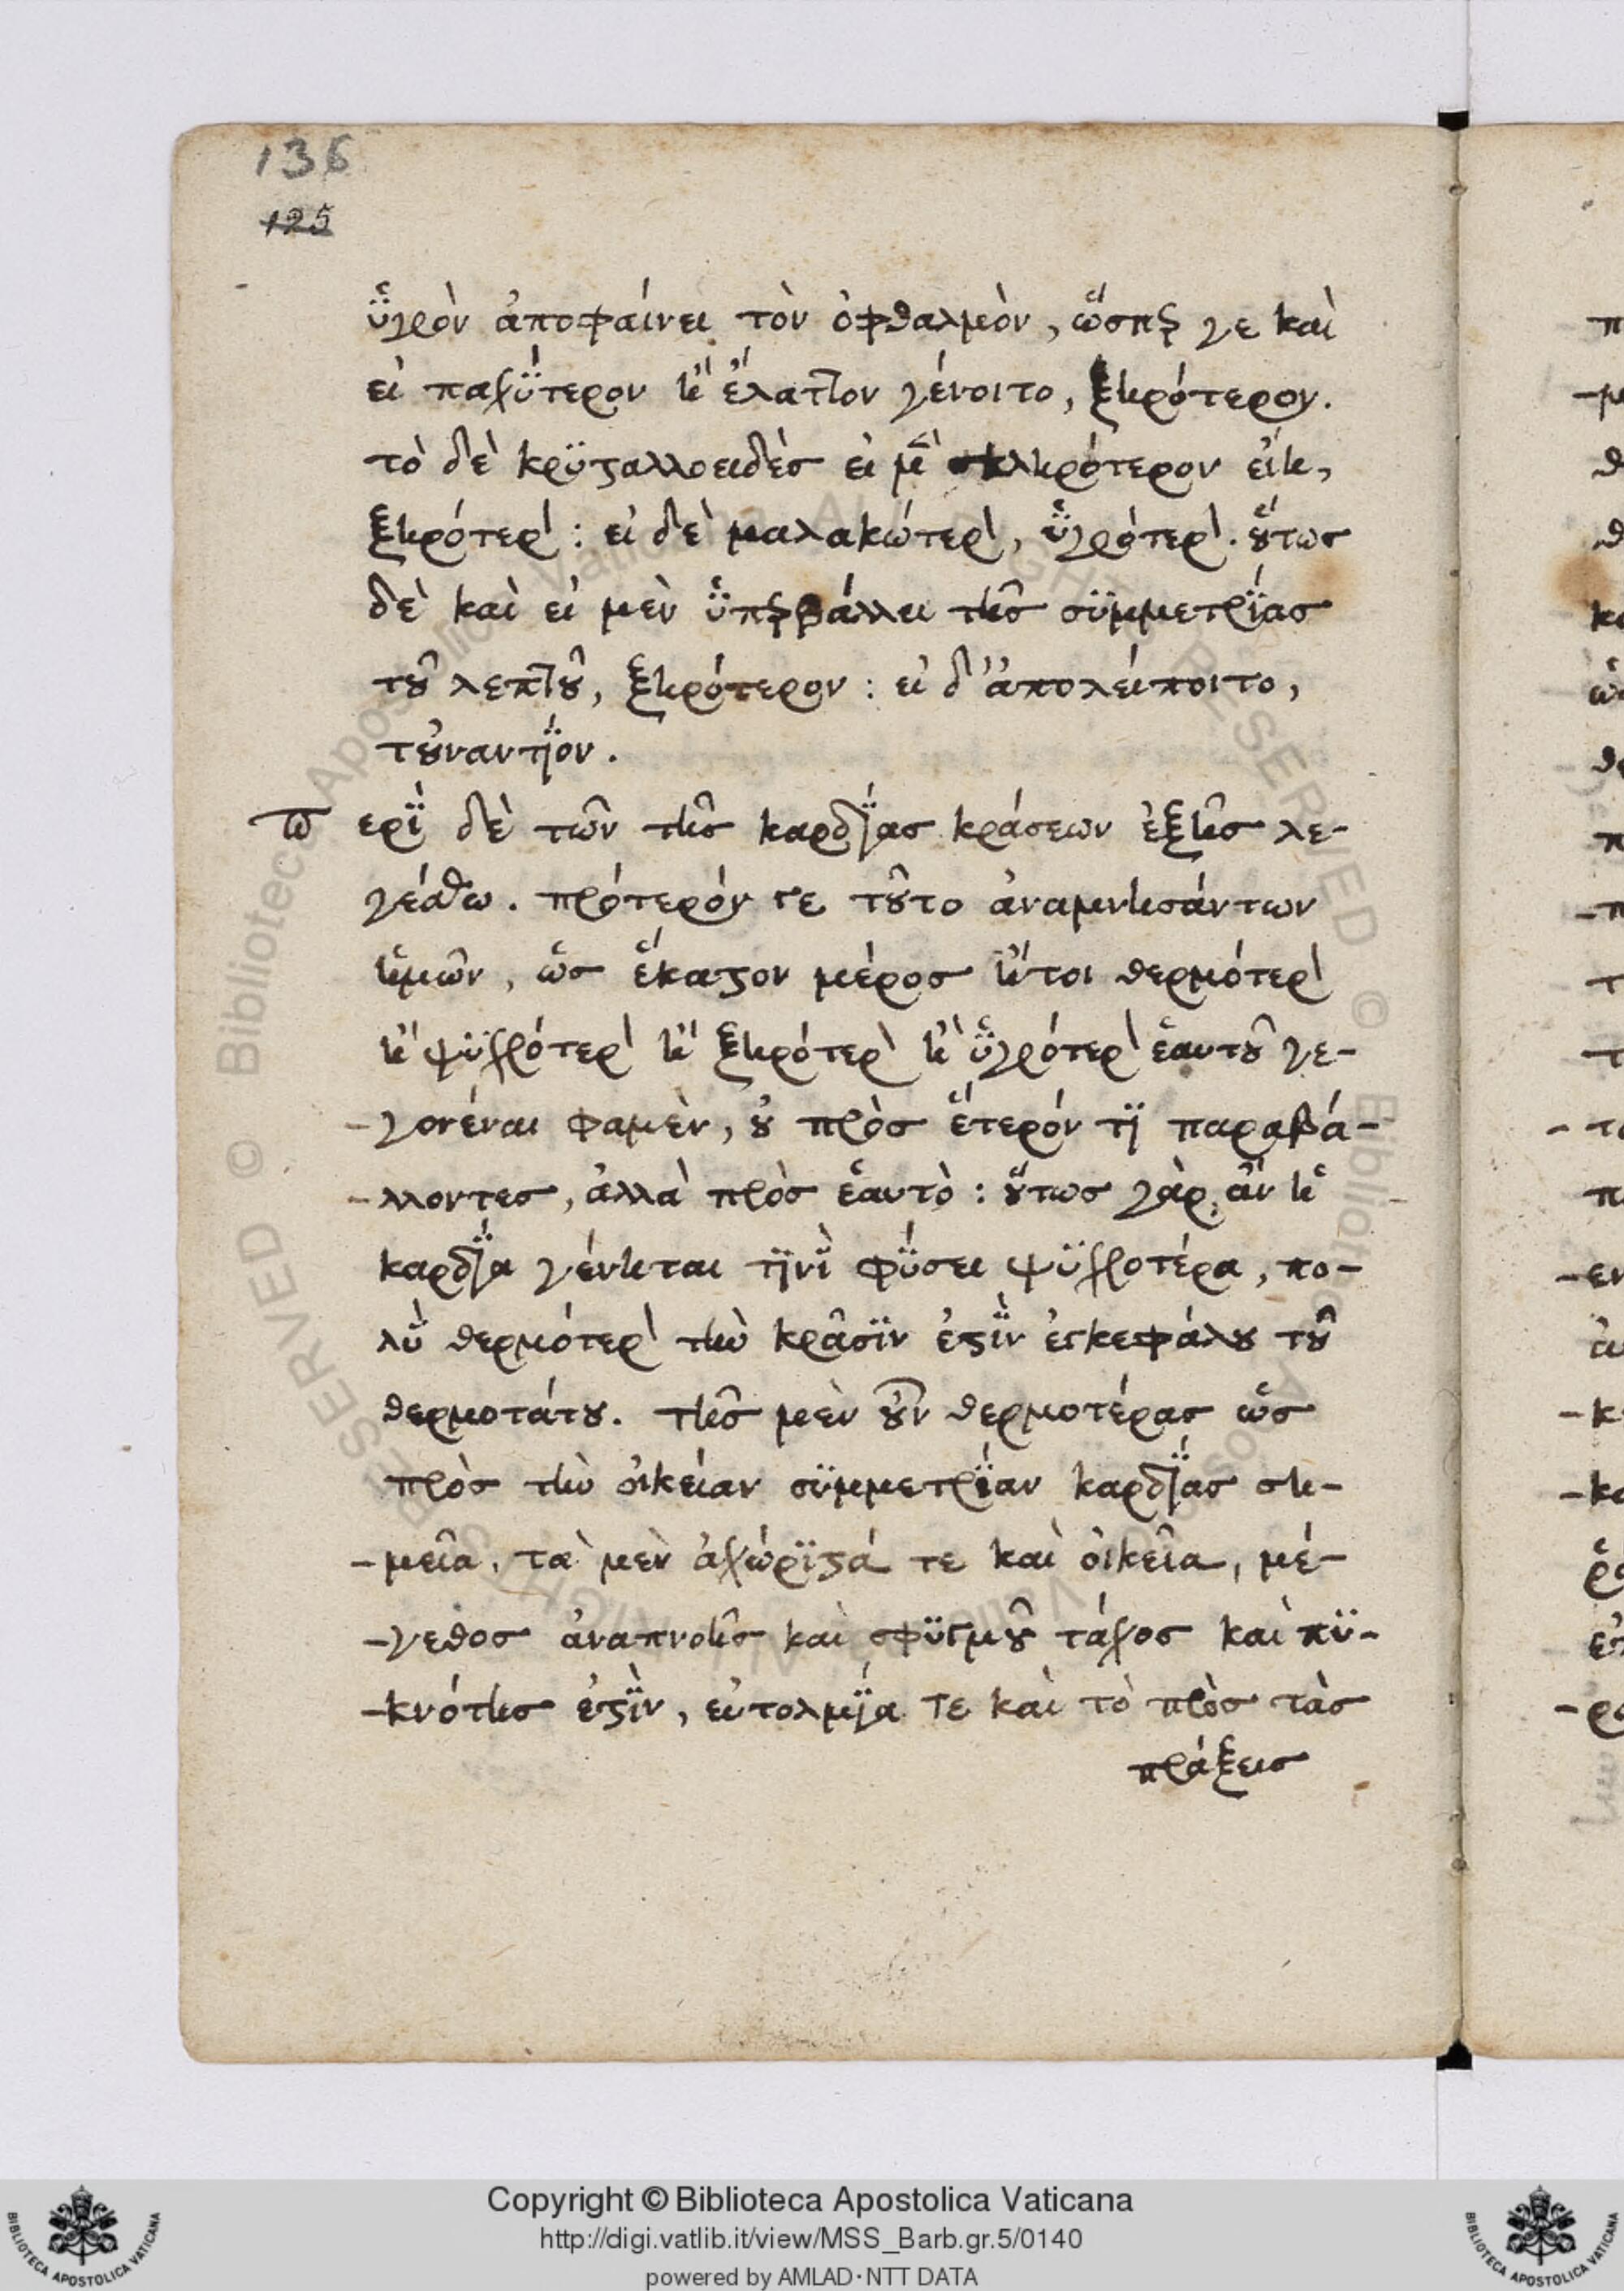 136
125
ὑγρὸν ἀποφαίνει τὸν ὀφθαλμὸν, ὥσπερ γε καὶ
εἰ παχύτερον ἢ ἔλαττον γένοιτο, ξηρότερον.
τὸ δὲ κρϋσταλλοειδὲσ εἰ μὲν σκληρότερον εἴη,
ξηρότερον : εἰ δὲ μαλακώτερον, ὑγρότερον. οὕτωσ
δὲ καὶ εἰ μὲν ὑπερβάλλει τῆσ σϋμμετρίασ
τοῦ λεπτοῦ, ξηρότερον : εἰ δ' ἀπολείποιτο,
τοὐναντΐον.
Περὶ δὲ τῶν τῆσ καρδΐασ κράσεων ἑξῆσ λε-
γέσθω. πρότερόν γε τοῦτο ἀναμνησάντων
ἡμῶν, ὡσ ἕκαστον μέροσ ἤτοι θερμότερον
ἢ ψϋχρότερον ἢ ξηρότερον ἢ ὑγρότερον ἑαυτοῦ γε-
-γονέναι φαμὲν, οὐ πρὸσ ἕτερόν τϊ παραβά-
-λλοντεσ, ἀλλὰ πρὸσ ἑαυτὸ : οὕπωσ γὰρ ἂν ἡ
καρδΐα γένηται τϊνῒ φΰσει ψϋχροτέρα, πο-
λῢ θερμότερον τὴν κρᾶσϊν ἐστῒν ἐγκεφάλου τοῦ
θερμοτάτου. τῆσ μὲν οὖν θερμοτέρασ ὡσ
πρὸσ τὴν οἰκείαν σϋμμετρΐαν καρδΐασ ση-
-μεῖα, τὰ μὲν ἀχώρϊστά τε καὶ οἰκεῖα, μέ-
-γεθοσ ἀναπνοῆσ καὶ σφϋγμοῦ τάχοσ καὶ πϋ-
-κνότησ ἐστῒν, εὐτολμΐα τε καὶ τὸ πρὸσ τὰσ
πράξεισ
Copyright © Biblioteca Apostolica Vaticana
http://digi.vatlib.it/view/MSS_Barb.gr.5/0140
powered by AMLAD·NTT DATA